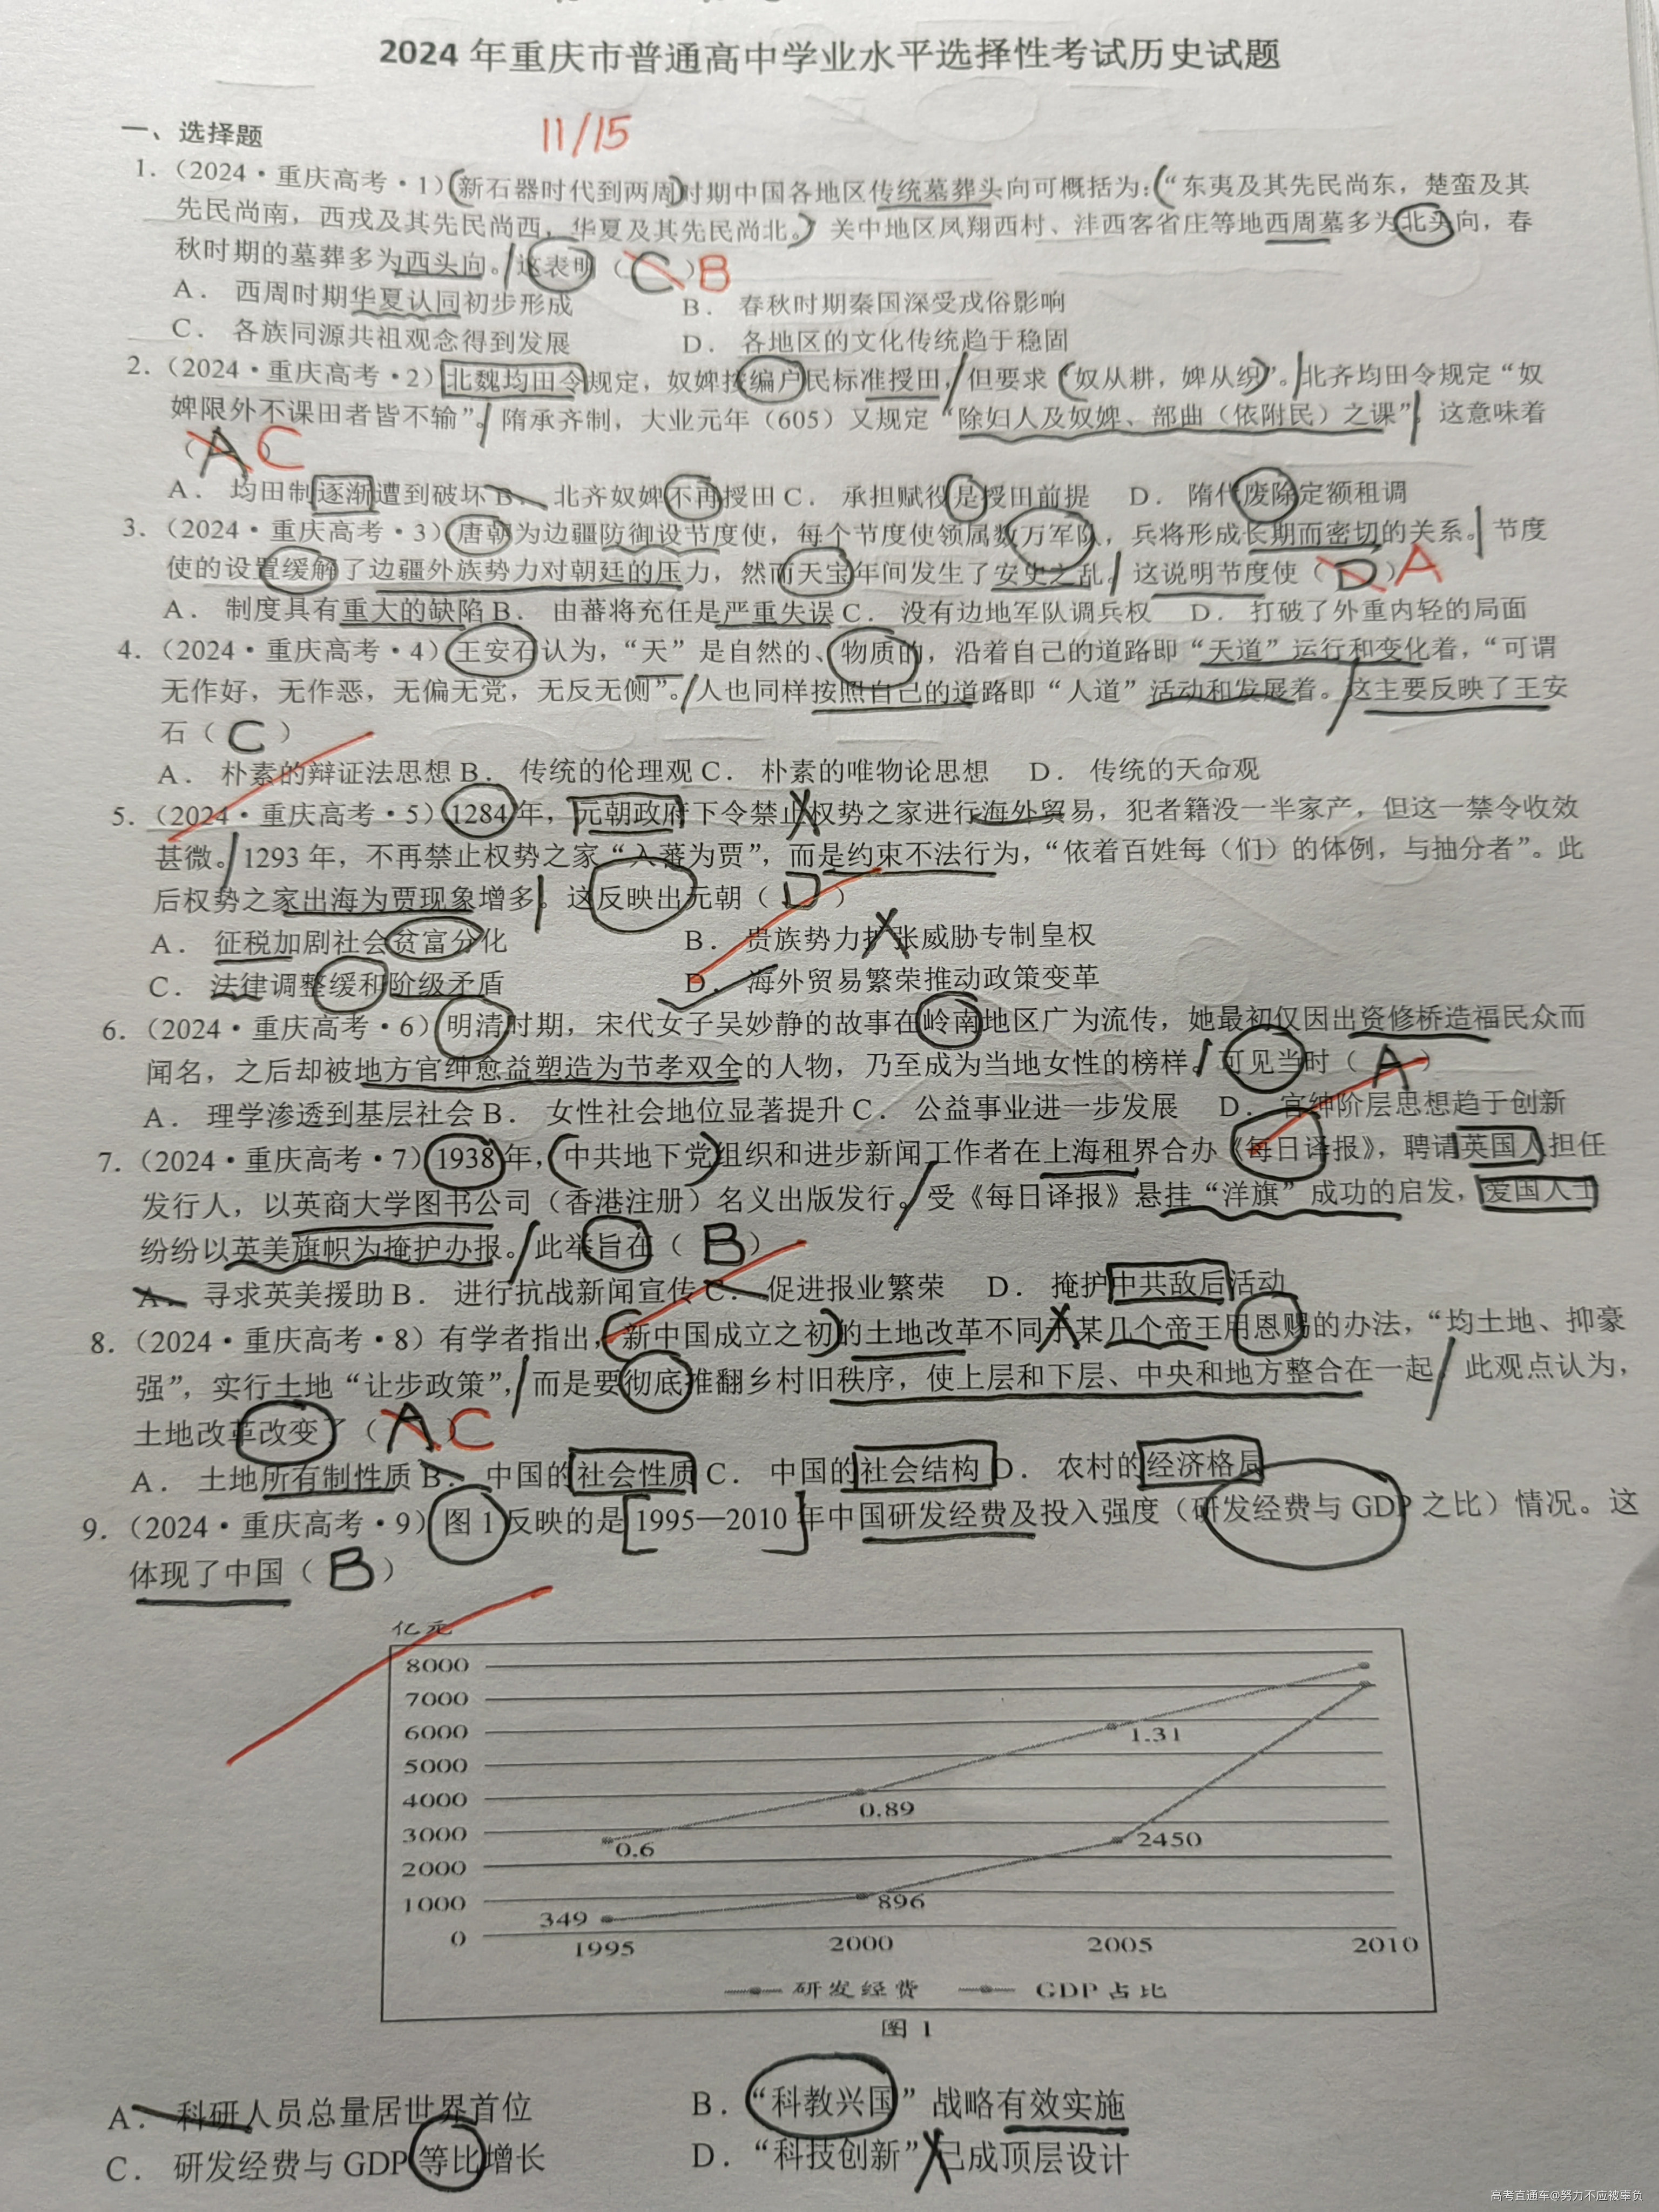 2024年重庆市普通高中学业水平选择性考试历史试题
一、选择题
11/15
1.（2024·重庆高考·1）新石器时代到两周时期中国各地区传统墓葬头向可概括为：“东夷及其先民尚东，楚蛮及其
先民尚南，西戎及其先民尚西，华夏及其先民尚北。”关中地区凤翔西村、沣西客省庄等地西周墓多为北头向，春
秋时期的墓葬多为西头向。这表明（C）B
A． 西周时期华夏认同初步形成 B． 春秋时期秦国深受戎俗影响
C． 各族同源共祖观念得到发展 D． 各地区的文化传统趋于稳固
2.（2024·重庆高考·2）北魏均田令规定，奴婢按编户民标准授田，但要求“奴从耕，婢从织”。北齐均田令规定“奴
婢限外不课田者皆不输”。隋承齐制，大业元年（605）又规定“除妇人及奴婢、部曲（依附民）之课”。这意味着
（A）C
A． 均田制逐渐遭到破坏 B． 北齐奴婢不再授田 C． 承担赋役是授田前提 D． 隋代废除定额租调
3.（2024·重庆高考·3）唐朝为边疆防御设节度使，每个节度使领属数万军队，兵将形成长期而密切的关系。节度
使的设置缓解了边疆外族势力对朝廷的压力，然而天宝年间发生了安史之乱。这说明节度使（D）A
A． 制度具有重大的缺陷 B． 由蕃将充任是严重失误 C． 没有边地军队调兵权 D． 打破了外重内轻的局面
4.（2024·重庆高考·4）王安石认为，“天”是自然的、物质的，沿着自己的道路即“天道”运行和变化着，“可谓
无作好，无作恶，无偏无党，无反无侧”。人也同样按照自己的道路即“人道”活动和发展着。这主要反映了王安
石（C）
A． 朴素的辩证法思想 B． 传统的伦理观 C． 朴素的唯物论思想 D． 传统的天命观
5.（2024·重庆高考·5）1284年，元朝政府下令禁止权势之家进行海外贸易，犯者籍没一半家产，但这一禁令收效
甚微。1293年，不再禁止权势之家“入蕃为贾”，而是约束不法行为，“依着百姓每（们）的体例，与抽分者”。此
后权势之家出海为贾现象增多。这反映出元朝（D）
A． 征税加剧社会贫富分化 B． 贵族势力扩张威胁专制皇权
C． 法律调整缓和阶级矛盾 D． 海外贸易繁荣推动政策变革
6.（2024·重庆高考·6）明清时期，宋代女子吴妙静的故事在岭南地区广为流传，她最初仅因出资修桥造福民众而
闻名，之后却被地方官绅愈益塑造为节孝双全的人物，乃至成为当地女性的榜样。可见当时（A）
A． 理学渗透到基层社会 B． 女性社会地位显著提升 C． 公益事业进一步发展 D． 官绅阶层思想趋于创新
7.（2024·重庆高考·7）1938年，中共地下党组织和进步新闻工作者在上海租界合办《每日译报》，聘请英国人担任
发行人，以英商大学图书公司（香港注册）名义出版发行。受《每日译报》悬挂“洋旗”成功的启发，爱国人士
纷纷以英美旗帜为掩护办报。此举旨在（B）
A． 寻求英美援助 B． 进行抗战新闻宣传 C． 促进报业繁荣 D． 掩护中共敌后活动
8.（2024·重庆高考·8）有学者指出，新中国成立之初的土地改革不同于某几个帝王用恩赐的办法，“均土地、抑豪
强”，实行土地“让步政策”，而是要彻底推翻乡村旧秩序，使上层和下层、中央和地方整合在一起。此观点认为，
土地改革改变了（A）C
A． 土地所有制性质 B． 中国的社会性质 C． 中国的社会结构 D． 农村的经济格局
9.（2024·重庆高考·9）图1反映的是1995—2010年中国研发经费及投入强度（研发经费与GDP之比）情况。这
体现了中国（B）
亿元
8000
7000
6000
1.31
5000
4000
0.89
3000
0.6
2450
2000
1000
896
349
0
1995 2000 2005 2010
研发经费 GDP占比
图1
A． 科研人员总量居世界首位 B．“科教兴国”战略有效实施
C． 研发经费与GDP等比增长 D．“科技创新”已成顶层设计
高考直通车@努力不应被辜负